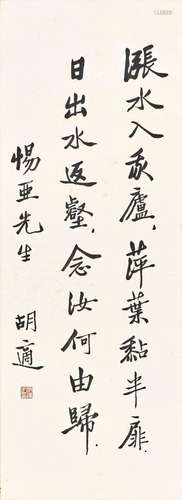 漲水入吾廬，萍葉黏半扉．
日出水返壑，念汝何由歸．
惕亜先生
胡適